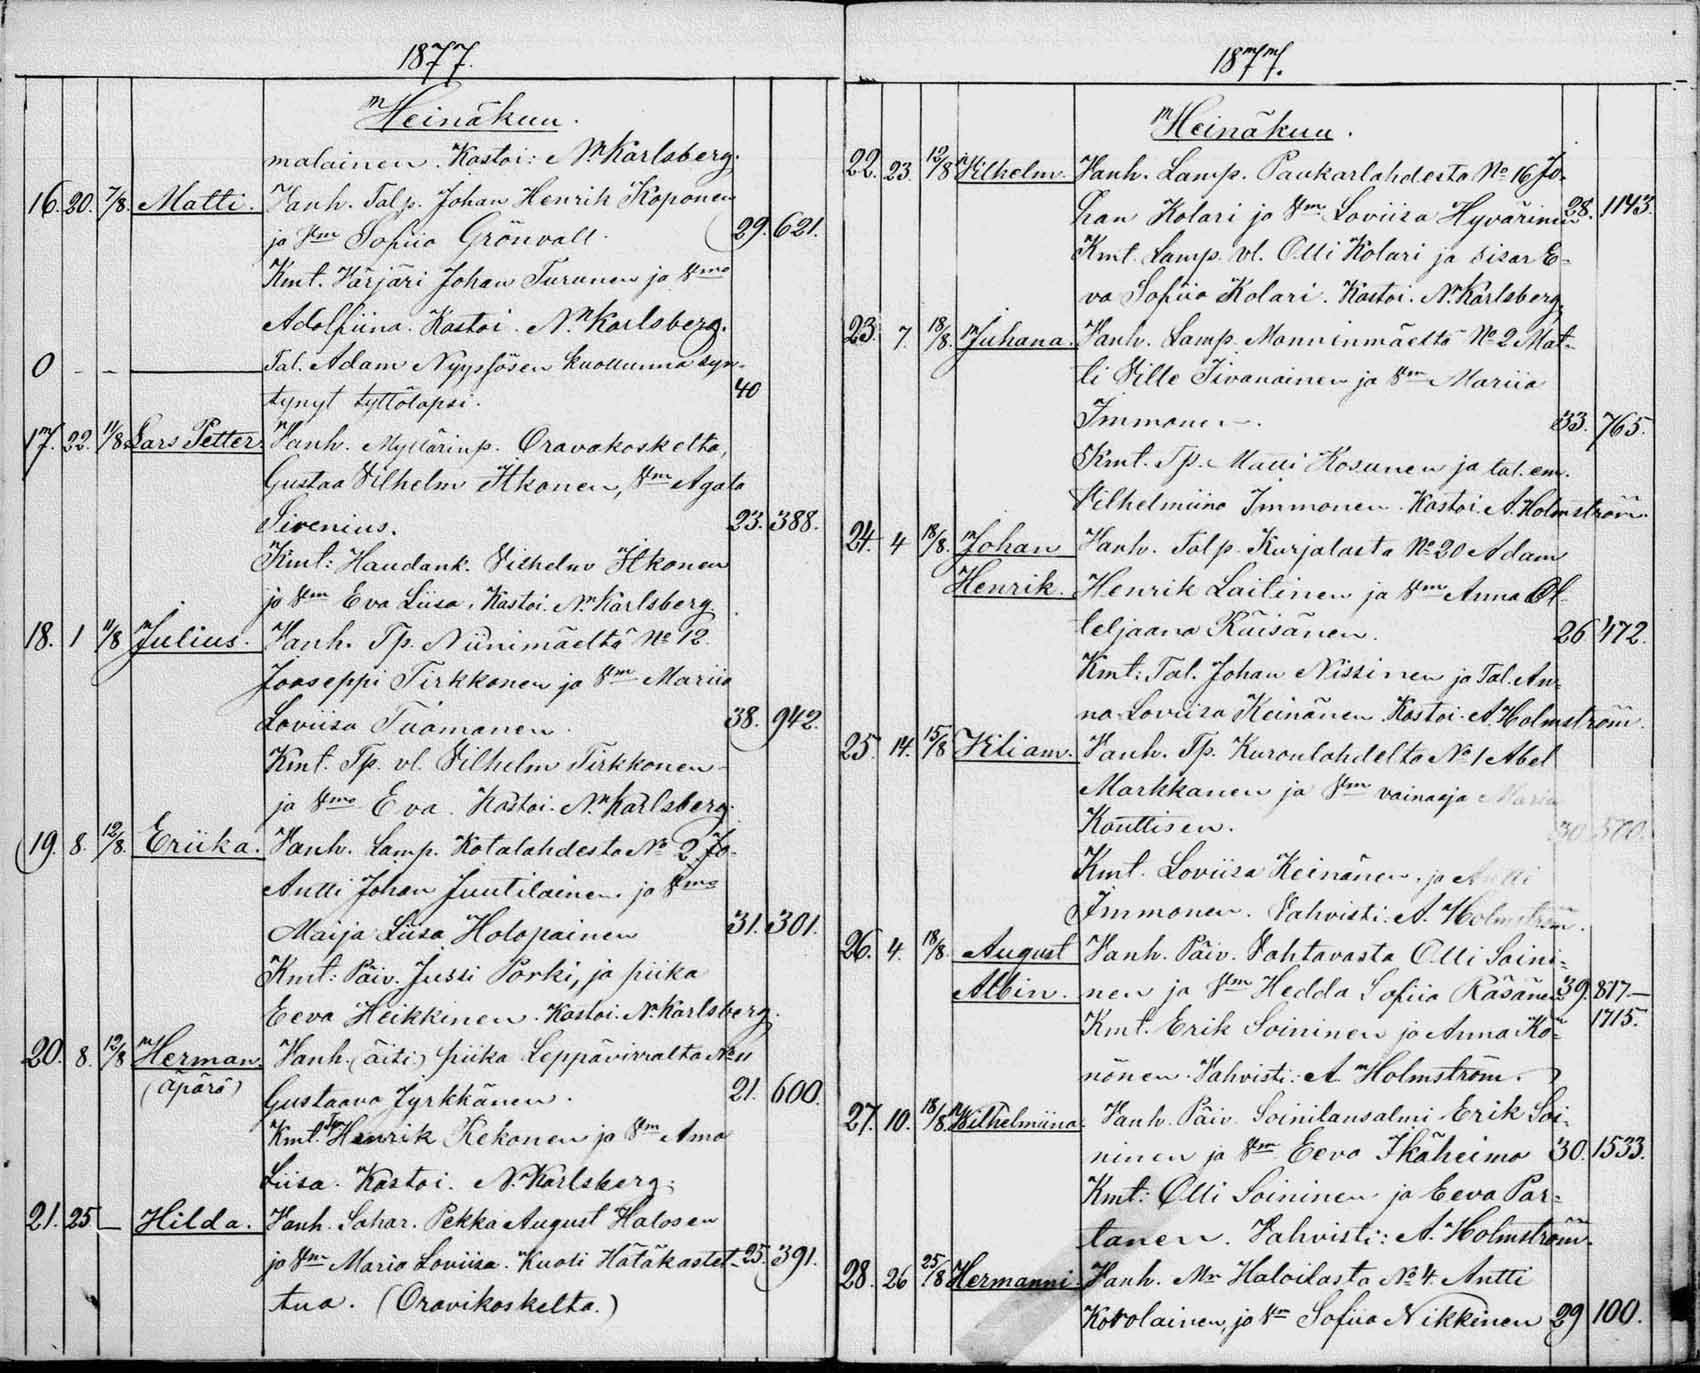 1877.
Heinäkuu.
malainen. Kastoi: N. Karlsberg.
16. 20. 7/8. Matti. Vanh. Talp. Johan Henrik Koponen
ja Vm Sofiia Grönvall. 29. 621.
Kmt. Värjäri Johan Turunen ja Vmo
Adolfiina. Kastoi. N. Karlsberg.
0 - - Tal. Adam Nyyssösen kuollunna syn-
tynyt tyttölapsi. 40
17. 22. 11/8 Lars Petter. Vanh. Myllärinp. Oravakoskelta,
Gustaa Vilhelm Itkonen, Vm Agata
Sirenius. 23. 388.
Kmt: Haudank. Vilhelm Itkonen
ja Vm Eva Liisa. Kastoi. N. Karlsberg.
18. 1 11/8 Julius. Vanh. Tp. Niinimäeltä No 12.
Jooseppi Tirkkonen ja Vm Mariia
Loviisa Tuomanen. 38. 942.
Kmt. Tp. vl. Vilhelm Tirkkonen
ja Vmo Eva. Kastoi. N. Karlsberg.
19. 8. 12/8. Eriika. Vanh. Lamp. Kotalahdesta No 2. Jo-
Antti Johan Juutilainen ja Vmo
Maija Liisa Holopainen 31. 301.
Kmt: Päiv. Jussi Porki, ja piika
Eeva Heikkinen. Kastoi. N. Karlsberg.
20. 8. 12/8 Herman. Vanh. (äiti) piika Leppävirralta No 11
(äpärä) Gustaava Jyrkkänen. 21. 600.
Kmt. Tp Henrik Kekonen ja Vm Anna
Liisa. Kastoi. N. Karlsberg.
21. 25 — Hilda. Vanh. Sahar. Pekka August Halosen
ja Vm Maria Loviisa. Kuoli Hätäkastet- 25. 391.
tua. (Oravikoskelta.)
1877.
Heinäkuu.
22. 23. 12/8 Vilhelm. Vanh. Lamp. Paukarlahdesta No 16 Jo-
han Kolari ja Vm Loviisa Hyvärinen 28. 1143.
Kmt. Lamp. vl. Olli Kolari ja sisar E-
va Sofiia Kolari. Kastoi. N. Karlsberg
23. 7. 18/8. Juhana. Vanh. Lamp. Monninmäeltä No 2 Mat-
ti Ville Tivanainen ja Vm Mariia
Immonen. 33. 765.
Kmt. Tp. Matti Kosunen ja tal. em.
Vilhelmiina Immonen. Kastoi. A. Holmström.
24. 4 18/8. Johan Vanh. Talp. Kurjalasta No 20 Adam
Henrik. Henrik Laitinen ja Vm Anna Ol-
leljaana Räisänen. 26 472.
Kmt: Tal. Johan Nissinen ja Tal. An-
na Loviisa Keinänen. Kastoi. A. Holmström.
25. 14. 15/8 Viliam. Vanh. Tp. Kuronlahdelta No 1 Abel
Markkanen ja Vm vainaaja Maria
Konttisen. 30. 570.
Kmt. Loviisa Keinänen, ja Antti
Immonen. Vahvisti: A. Holmström.
26. 4. 18/8 August Vanh. Päiv. Vahtavasta Olli Soini-
Albin. nen ja Vm Hedda Sofiia Räsänen 39. 817—
Kmt. Erik Soininen ja Anna Ko- 1715.
nönen. Vahvisti: A. Holmström.
27. 10. 18/8. Wilhelmiina. Vanh. Päiv. Soinilansalmi Erik Soi-
ninen ja Vm Eeva Ikäheimo 30. 1533.
Kmt: Olli Soininen ja Eeva Par-
tanen. Vahvisti: A. Holmström.
28. 26 25/8 Hermanni. Vanh. Mr Haloilasta No 4. Antti
Korolainen, ja Vm Sofiia Nikkinen 29 100.